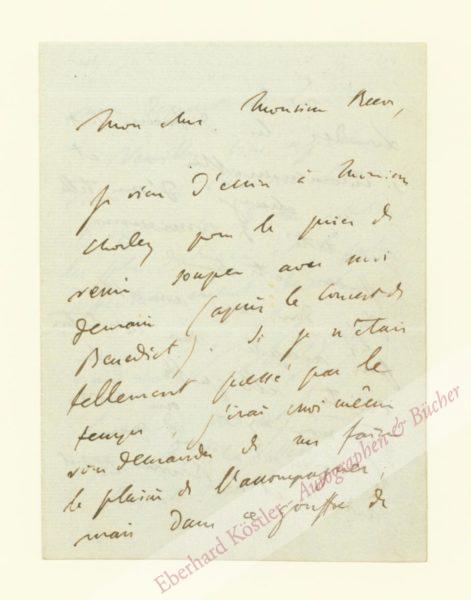 Mon cher Monsieur Reeve,
Je viens d'écrire à Monsieur
Chorley pour le prier de
venir souper avec moi
demain (après le Concert de
Benedict). Si je n'étais
tellement pressé par le
temps, j'irais moi même
vous demander de me faire
le plaisir de l'accompagner,
mais dans ce gouffre de
Eberhard Köstler - Autographen & Bücher